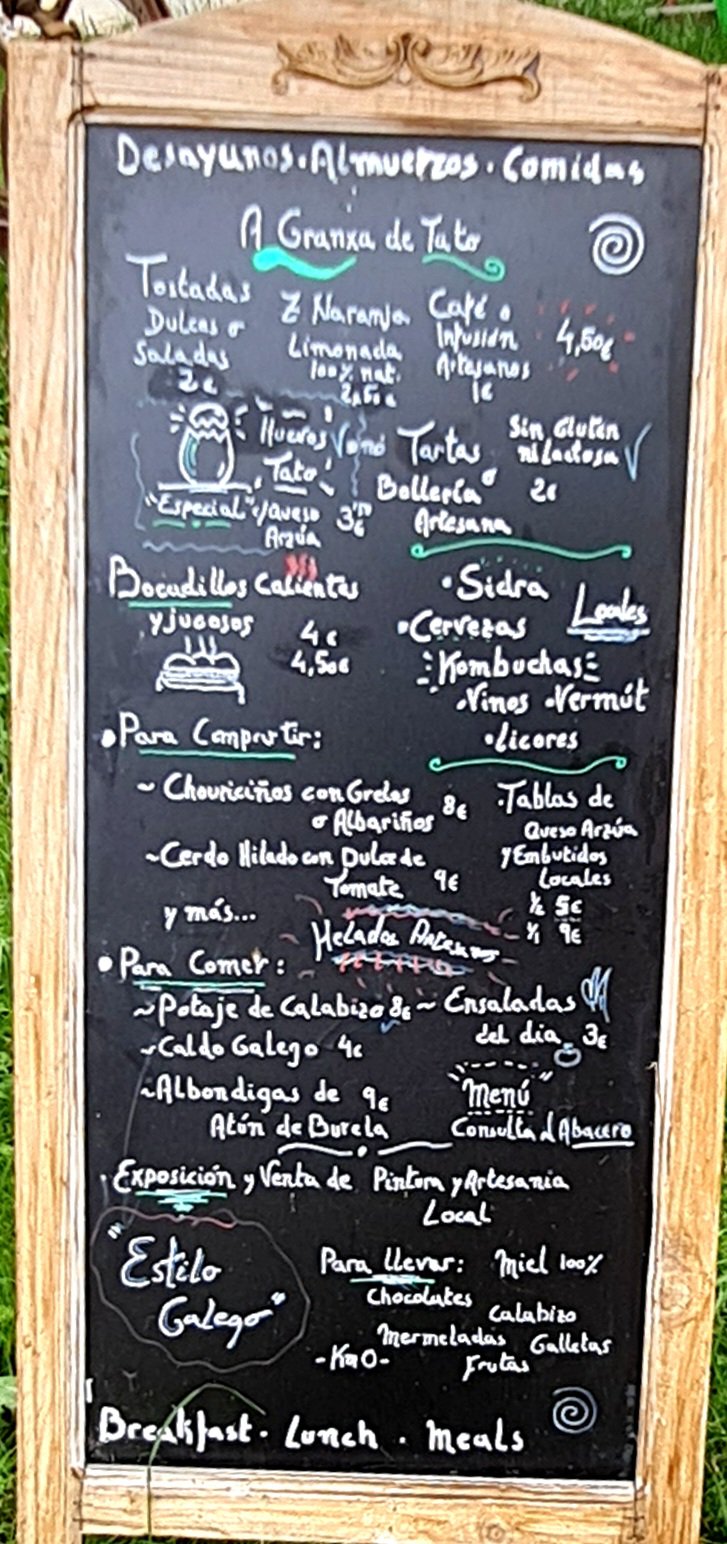 Desayunos · Almuerzos · Comidas
A Granxa de Tato
Tostadas
Dulces o
Saladas
2€
Z Naranja
Limonada
100% nat.
2,50€
Café o
Infusión
Artesanos
1€
4,50€
Huevos
Tato
"Especial" c/queso
Arzúa
3€
Tartas
Bollería
Artesana
Sin Gluten
ni Lactosa
2€
Bocadillos Calientes
y jugosos
4€
4,50€
· Sidra
· Cervezas
Locales
Kombuchas
· Vinos · Vermút
· Licores
· Para Compartir:
~ Chouriciños con Grelos
o Albariños
8€
~ Cerdo Hilado con Dulce de
Tomate 9€
y más...
· Tablas de
Queso Arzúa
y Embutidos
Locales
1/2 5€
1/1 9€
Helados Artesanos
· Para Comer:
~ Potaje de Calabizo 8€
~ Caldo Galego 4€
~ Albondigas de 9€
Atún de Burela
~ Ensaladas
del dia 3€
"Menú"
Consulta al Abacero
· Exposición y Venta de Pintura y Artesania
Local
"Estilo
Galego"
Para llevar: Miel 100%
Chocolates
Calabizo
Mermeladas
Galletas
- Km0 -
Frutas
Breakfast · Lunch · Meals